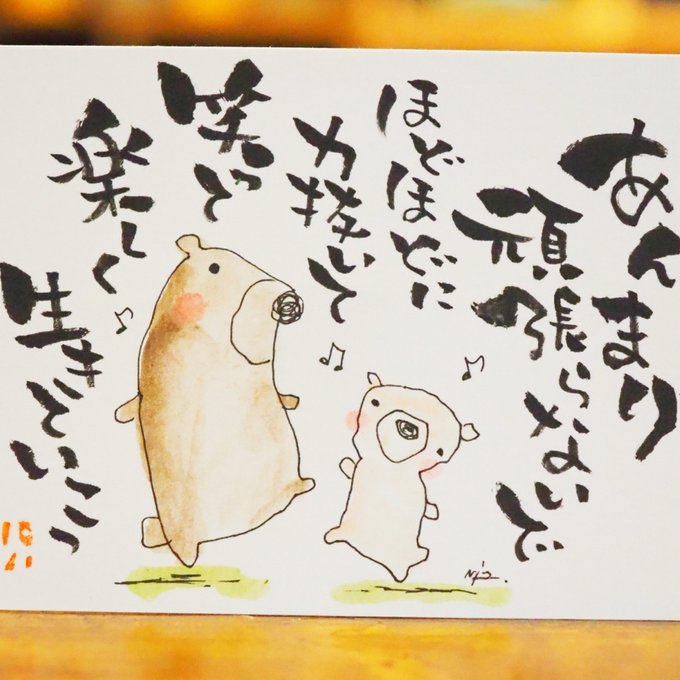 あんまり
頑張らないで
ほどほどに
力抜いて
笑って
楽しく
生きていこう